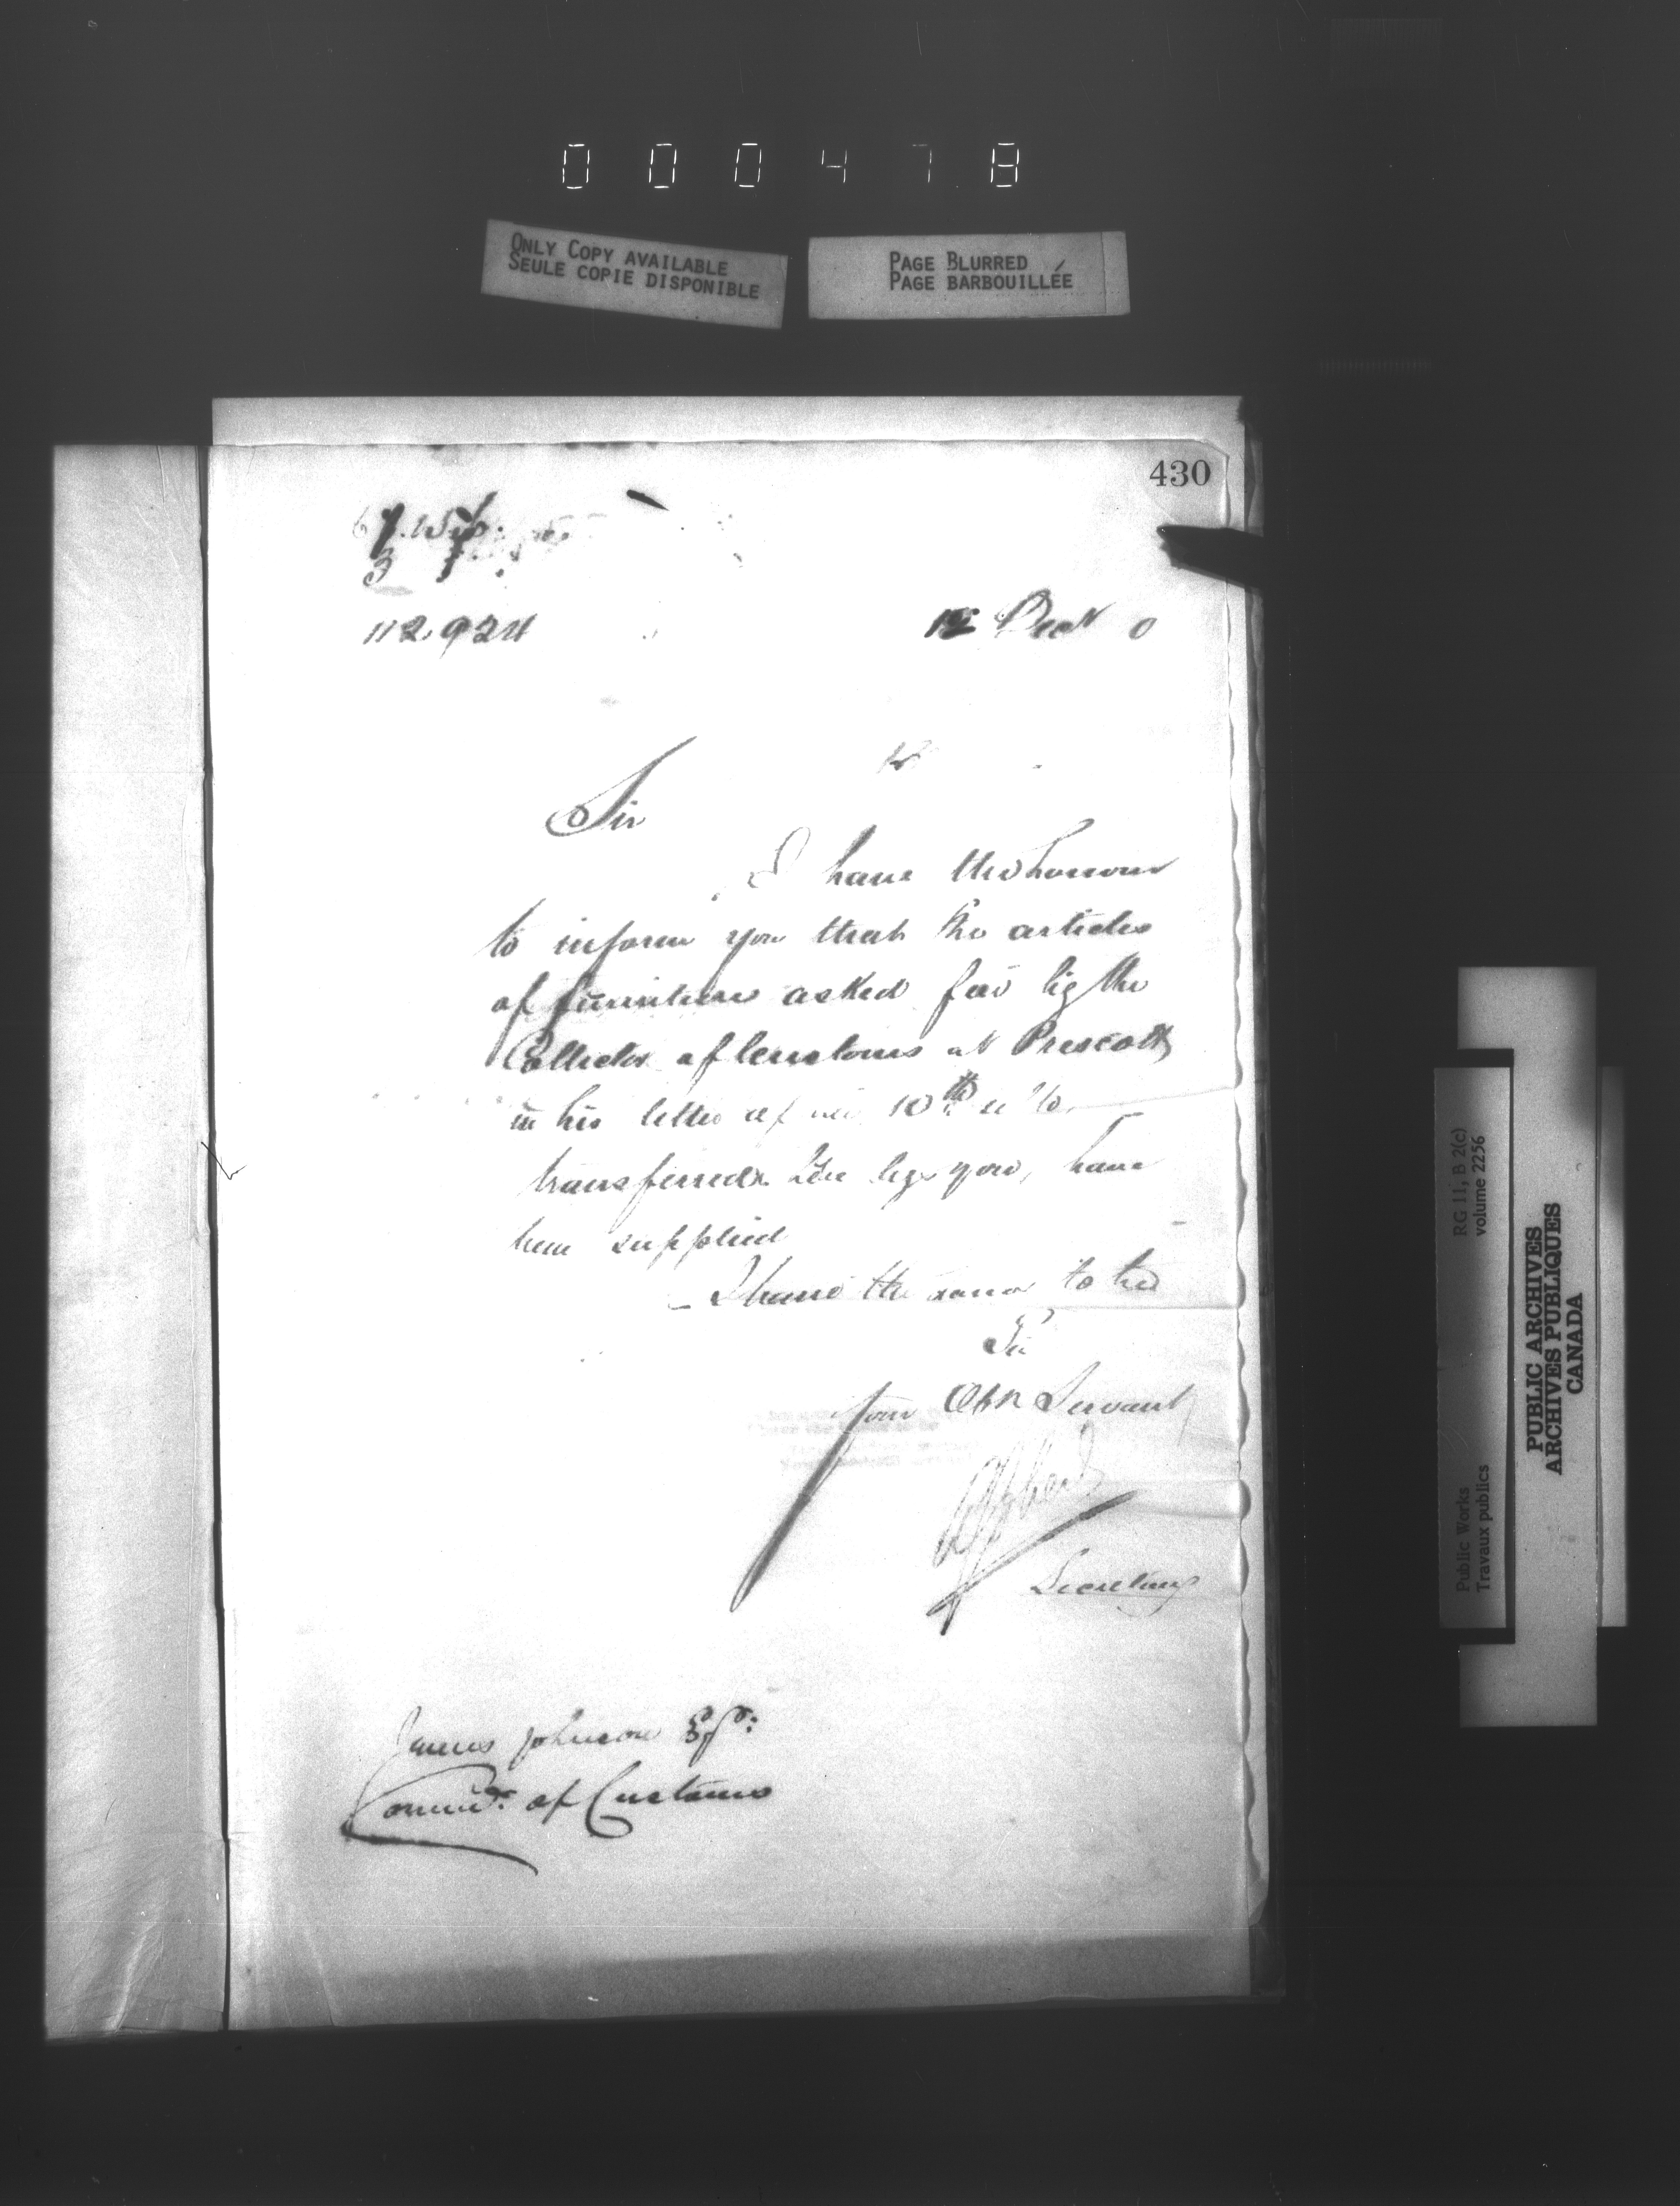 000478
ONLY COPY AVAILABLE
SEULE COPIE DISPONIBLE
PAGE BLURRED
PAGE BARBOUILLÉE
430
Sir
I have the honour
to inform you that the articles
of furniture asked for by the
Collector of Customs at Prescott
in his letter of 10th ulto
transferred here by you, have
been supplied
I have the honor to be
Sir
Your Obt Servant
Secretary
James Johnson Esqr:
Commr: of Customs
RG 11, B 2(c)
volume 2256
Public Works
Travaux publics
PUBLIC ARCHIVES
ARCHIVES PUBLIQUES
CANADA